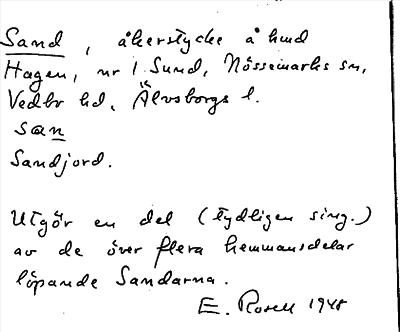 Sand, åkerstycke å hmd
Hagen, nr 1 Sund, Nössemarks sn,
Vedbo hd, Älvsborgs l.
san
Sandjord.
Utgör en del (tydligen sing.)
av de över flera hemmansdelar
löpande Sandarna.
E. Rosell 1948